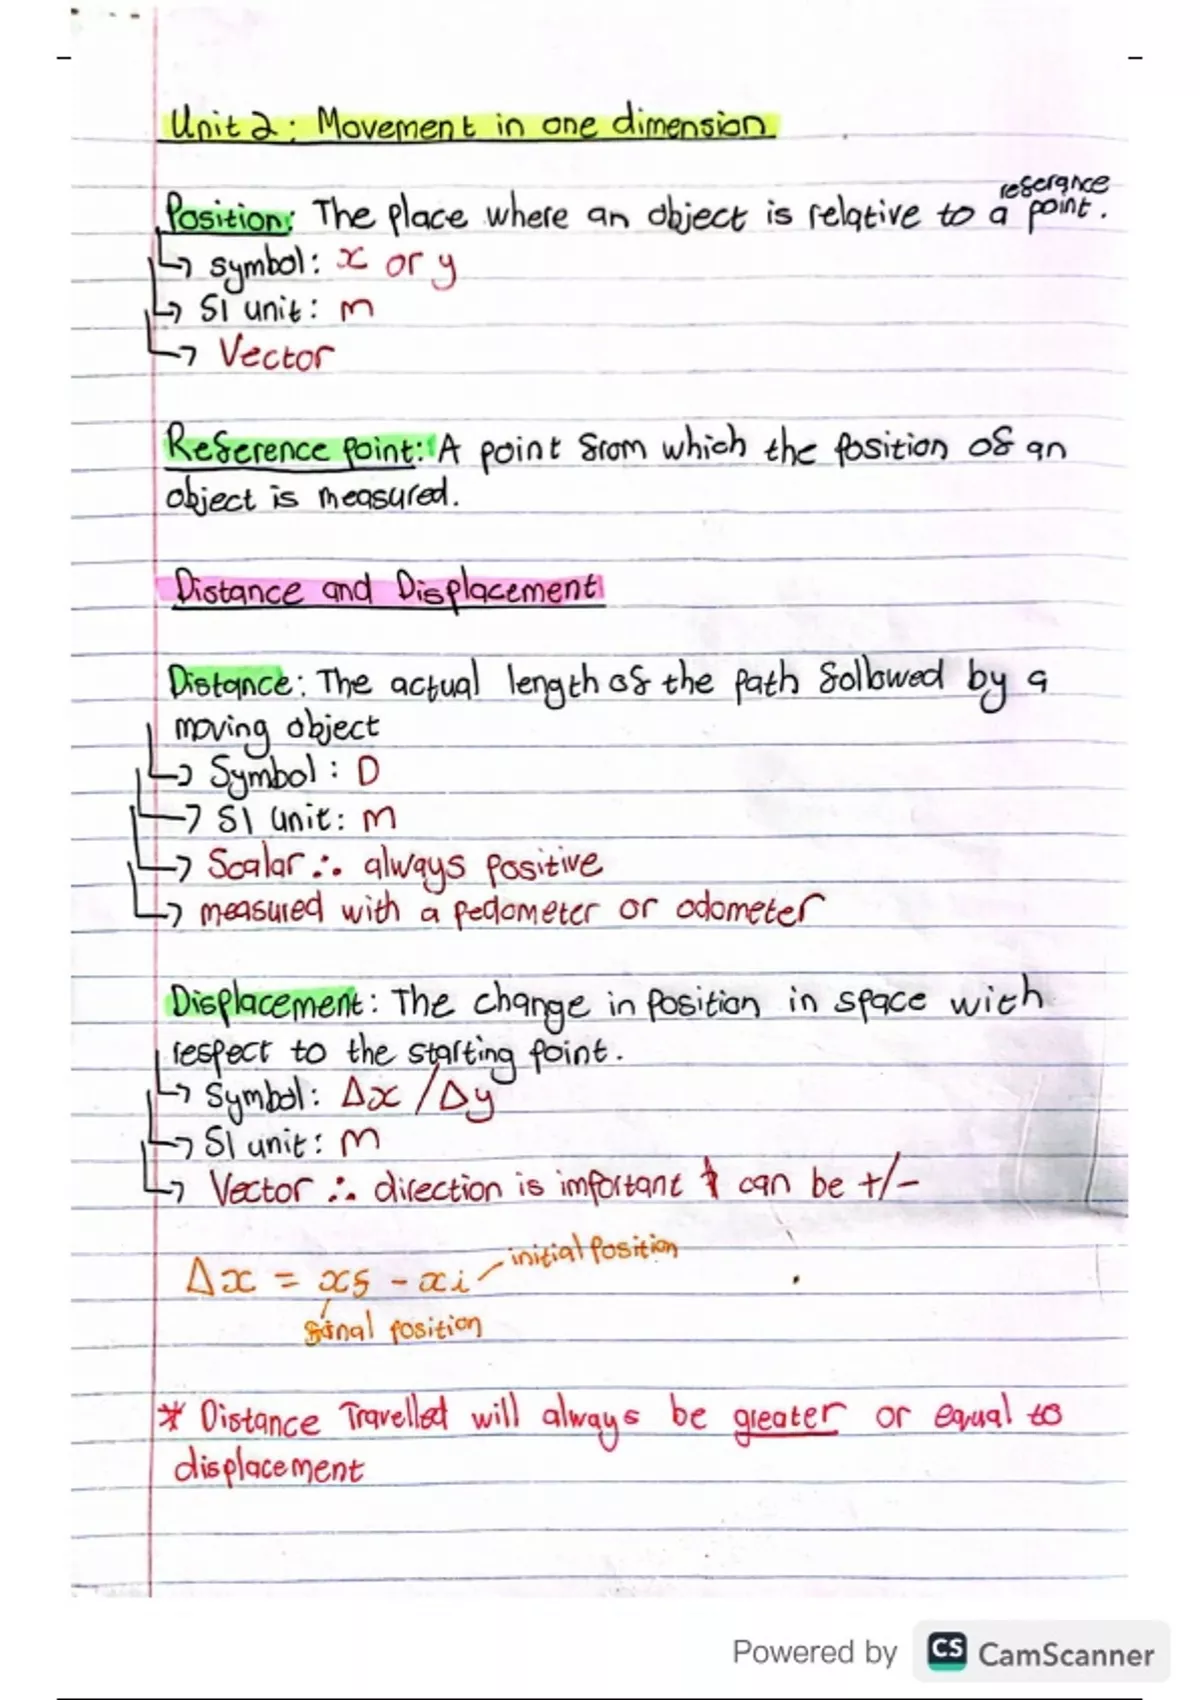 Unit 2: Movement in one dimension
Position: The place where an object is relative to a referance point.
↳ symbol: x or y
↳ SI unit: m
↳ Vector
Reference point: A point from which the position of an
object is measured.
Distance and Displacement
Distance: The actual length of the path followed by a
moving object
↳ Symbol: D
↳ SI unit: m
↳ Scalar ∴ always positive
↳ measured with a pedometer or odometer
Displacement: The change in position in space with
respect to the starting point.
↳ Symbol: Δx / Δy
↳ SI unit: m
↳ Vector ∴ direction is important & can be +/-
initial position
Δx = xf - xi
final position
* Distance Travelled will always be greater or equal to
displacement
Powered by CS CamScanner